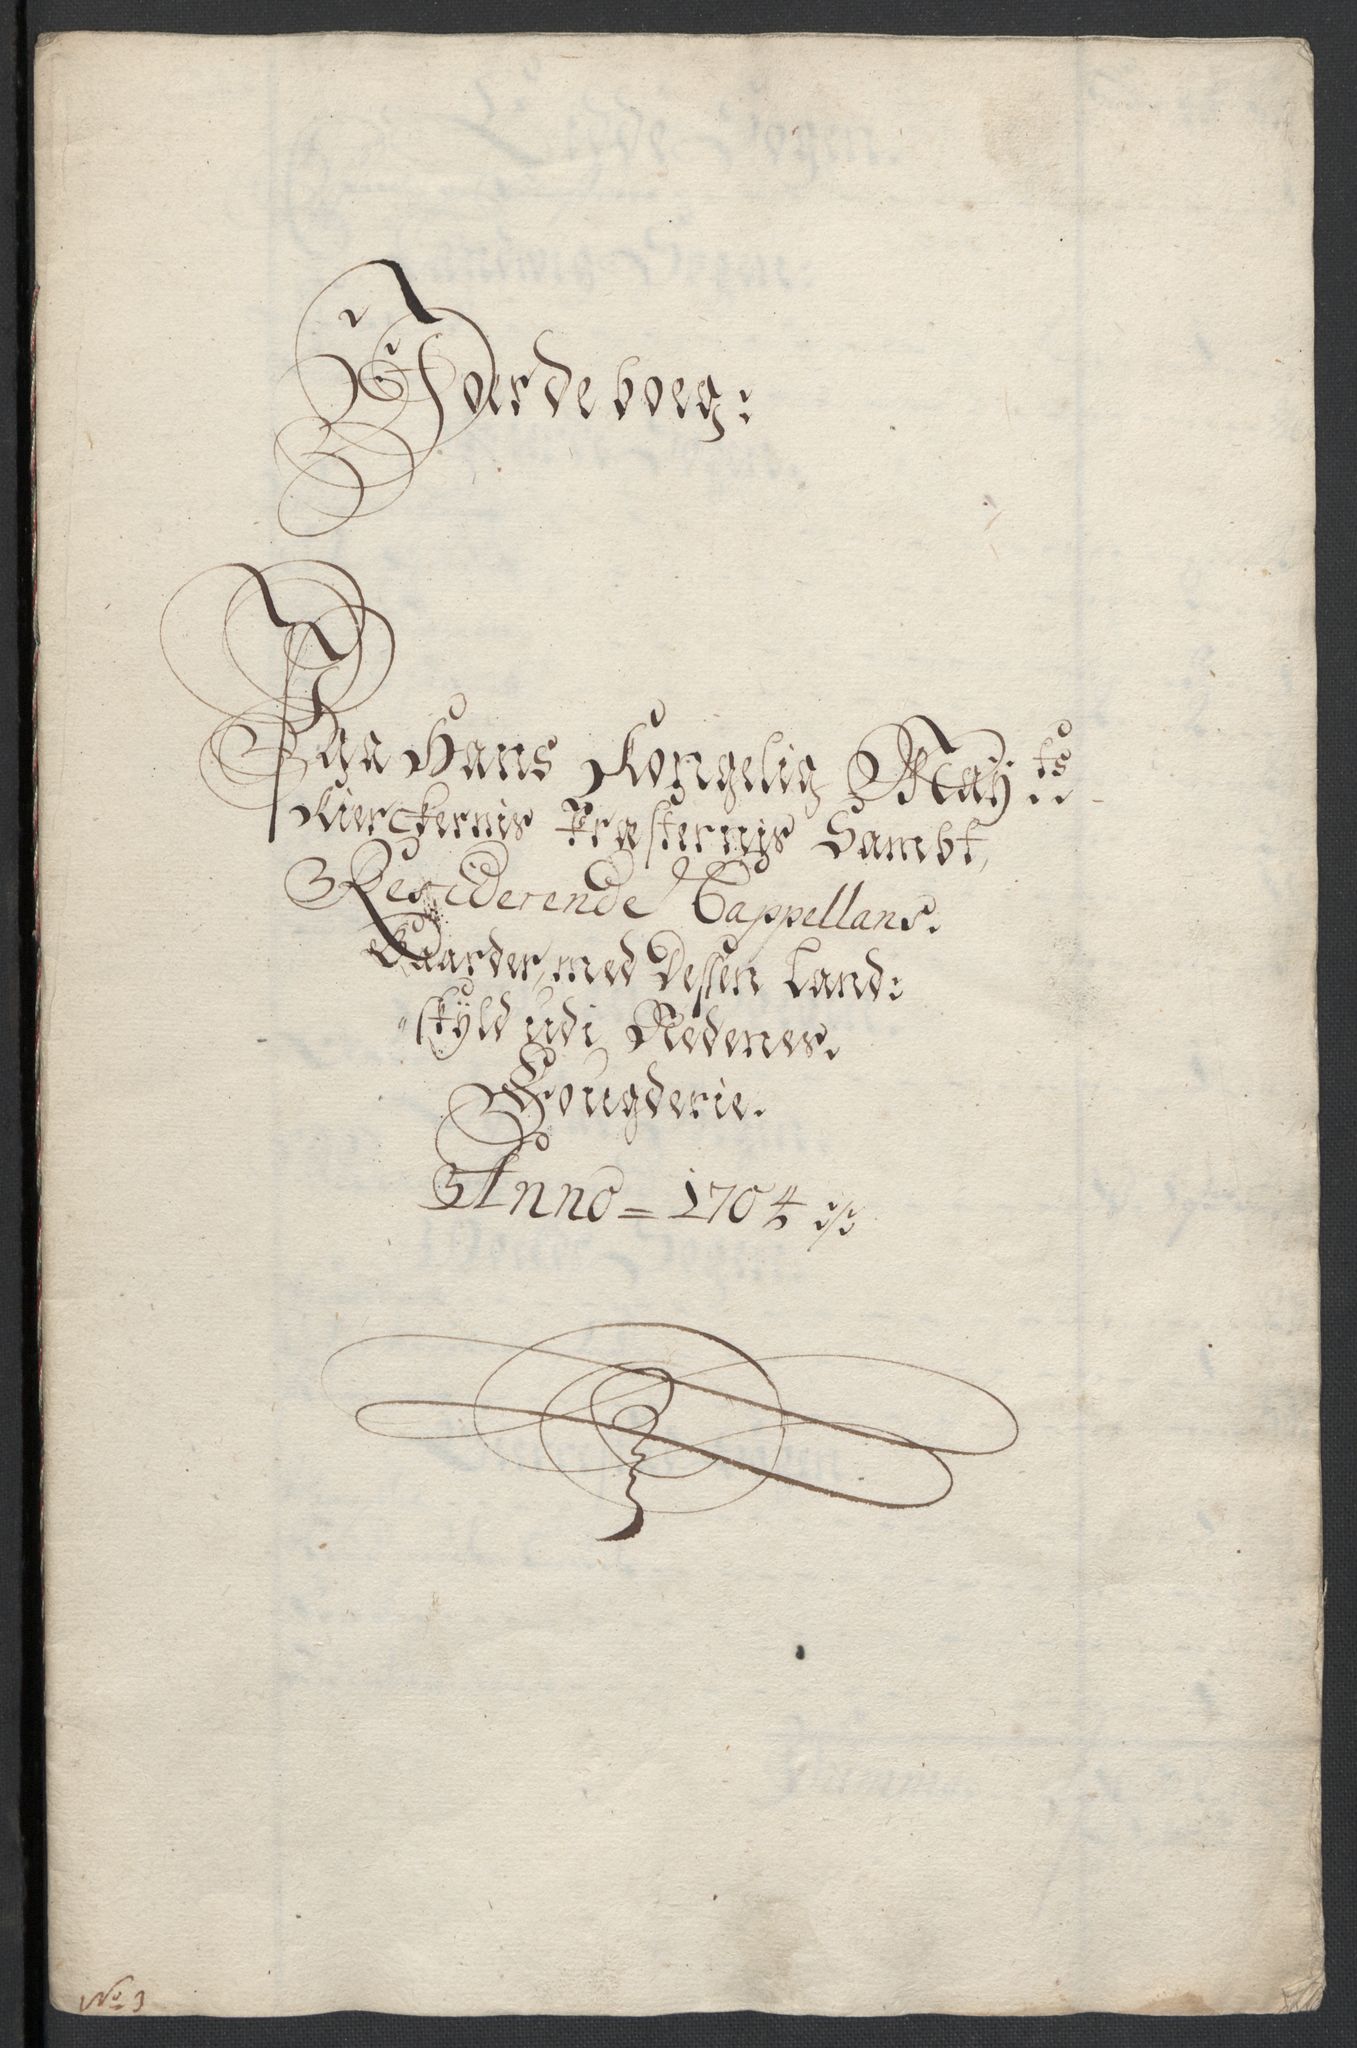 Jordeboeg:
Paa Hans Kongelig May:ts
Kierckernis Præsternis Sambt
Resciderende Cappellans.
Gaarder, med Dessen Land:
skyld udi Nedenes.
Fougderie.
Anno = 1704 ://:
No 3